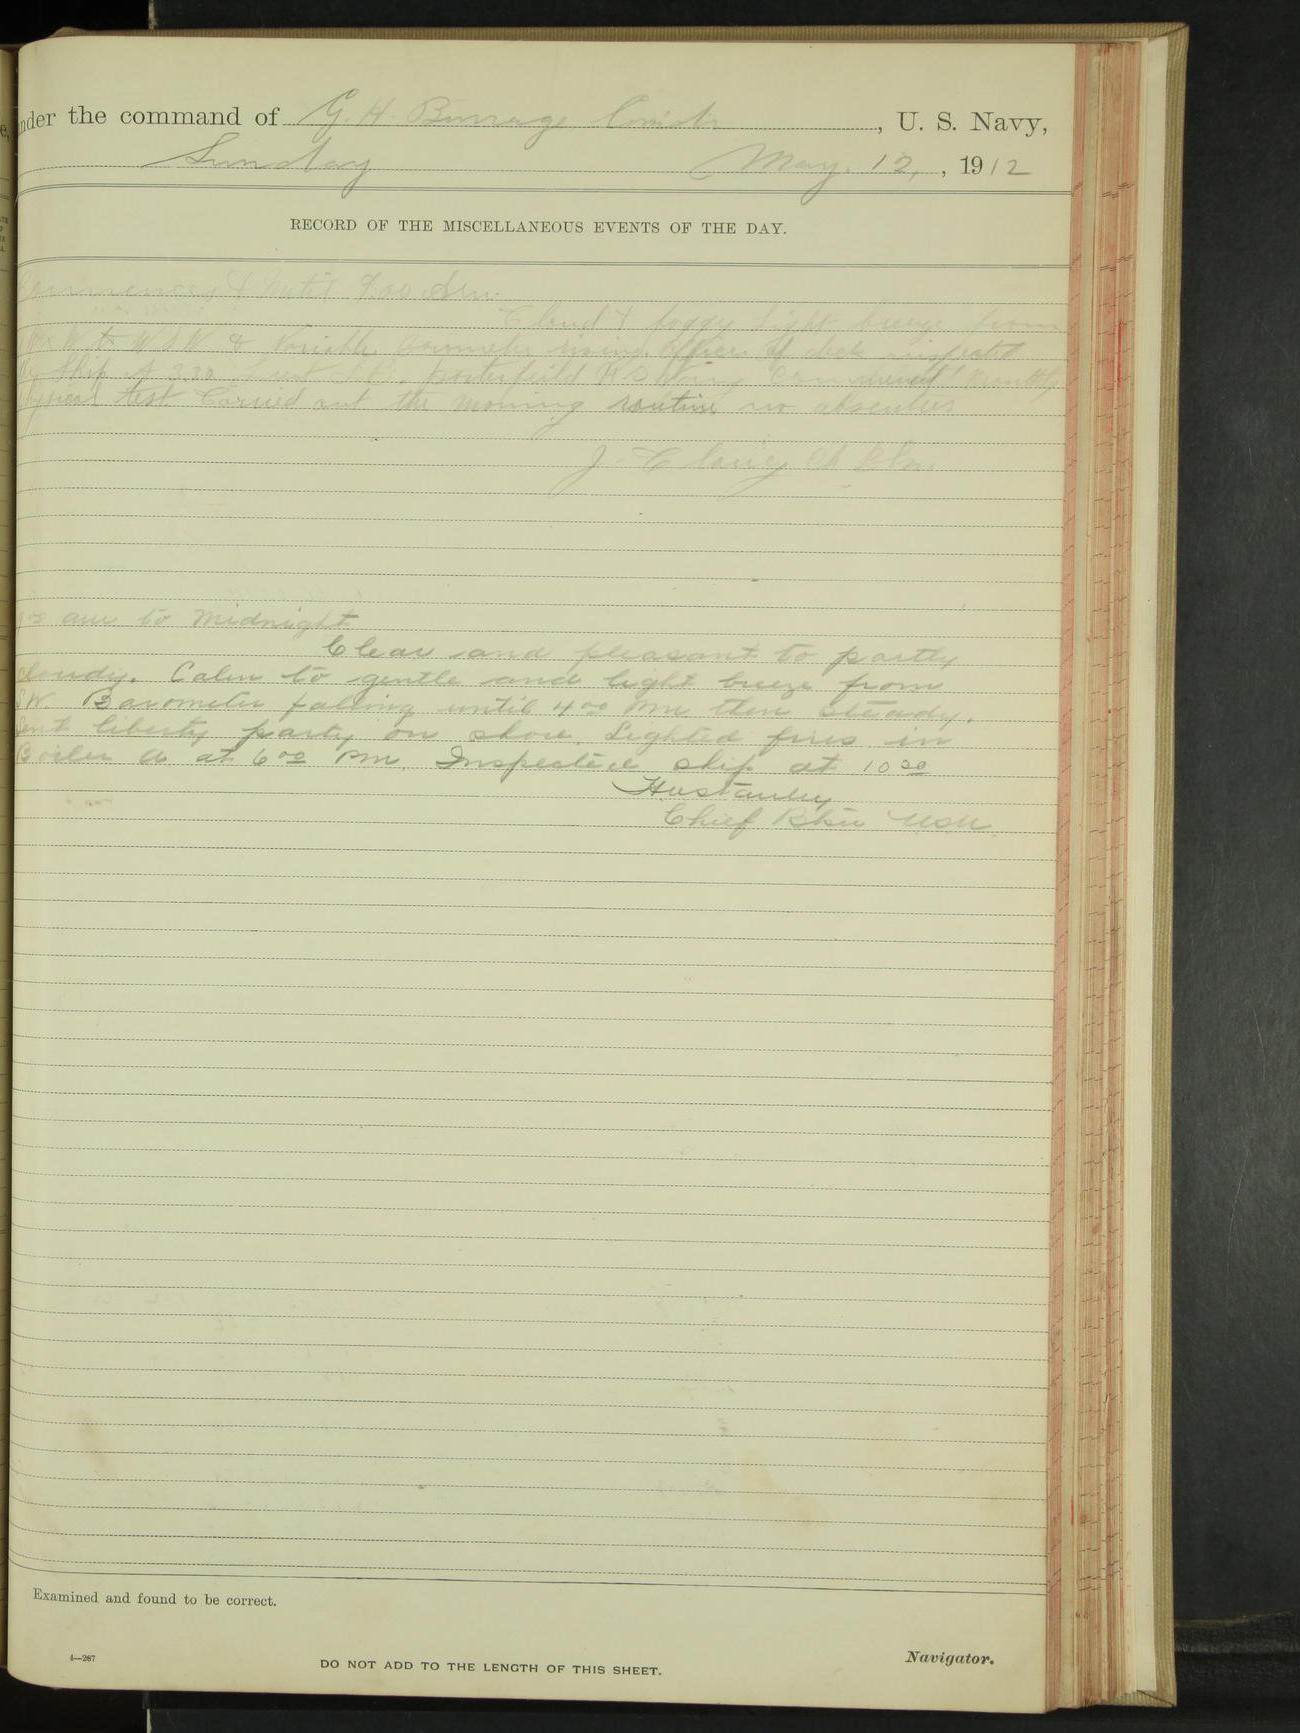 under the command of G. H. Burrage Comdr, U. S. Navy,
Sunday May. 12, , 1912
RECORD OF THE MISCELLANEOUS EVENTS OF THE DAY.
Commences & until
foggy light breeze from
W to WSW & variable barometer rising. Officer of deck inspected
ship at 3.30 monthly
physical test Carried out the morning routine no absentees
am to Midnight
Clear and pleasant to partly
cloudy. Calm to gentle and light breeze from
SW. Barometer falling until 4 00 PM then steady.
Sent liberty party on shore. Lighted fires in
Boiler A at 6 00 PM. Inspected ship at 10 30
Chief Btsn USN
Examined and found to be correct.
4—267
DO NOT ADD TO THE LENGTH OF THIS SHEET.
Navigator.